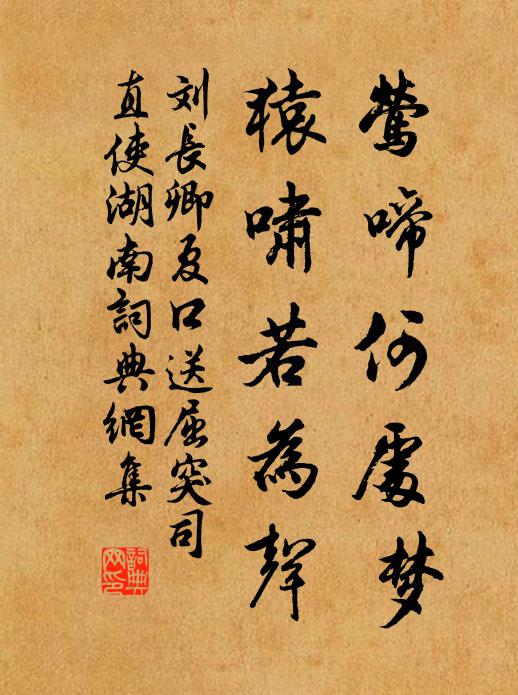 莺啼何處梦
猿嘯若為聲
刘長卿夏口送屈突司
直使湖南詞典網集
詞典网印